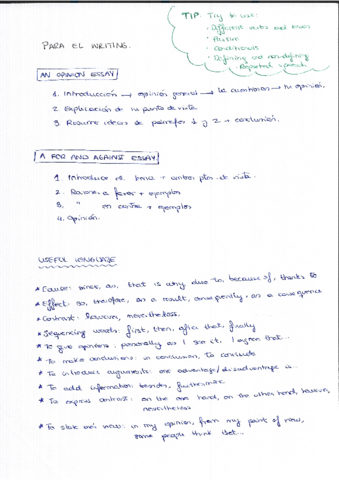 TIP: Try to use:
· Different verbs and tenses
· Passive
· Conditionals
· Defining and non-defining
· Reported speech
PARA EL WRITING.
AN OPINION ESSAY
1. Introducción → opinión general → la cuestionan → tu opinión.
2. Explicación de tu punto de vista
3. Resume ideas de párrafos 1 y 2 + conclusión.
A FOR AND AGAINST ESSAY
1. Introducir el tema + ambos ptos. de vista.
2. Razones a favor + ejemplos
3. " en contra + ejemplos
4. Opinión.
USEFUL LANGUAGE
* Cause: since, as, that is why due to, because of, thanks to
* Effect: so, therefore, as a result, consequently, as a consequence
* Contrast: however, nevertheless.
* Sequencing words: first, then, after that, finally
* To give opinions: personally as I see it, I agree that...
* To make conclusions: in conclusion, to conclude
* To introduce arguments: one advantage/disadvantage is...
* To add information: besides, furthermore
* To express contrast: on the one hand, on the other hand, however, nevertheless
* To state one's views: in my opinion, from my point of view,
some people think that...